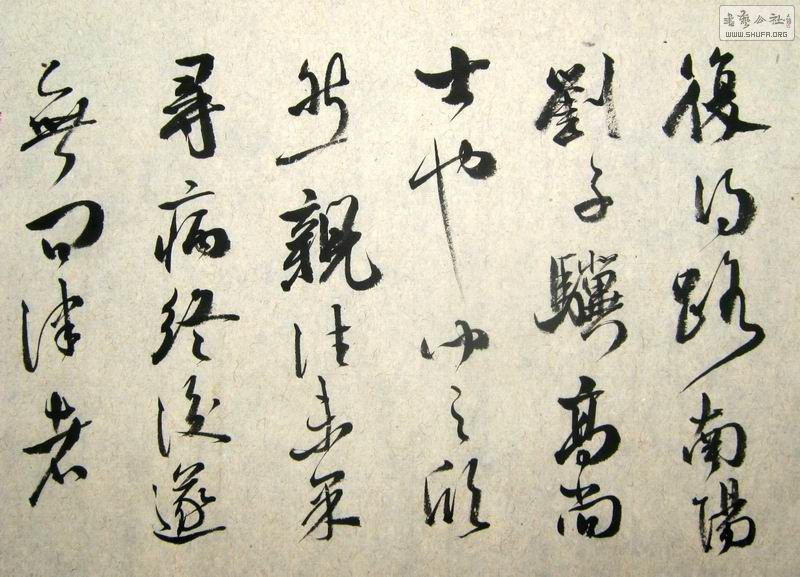 復得路南陽
劉子驥高尚
士也聞之欣
然親往未果
尋病終後遂
無問津者
書藝公社
WWW.SHUFA.ORG